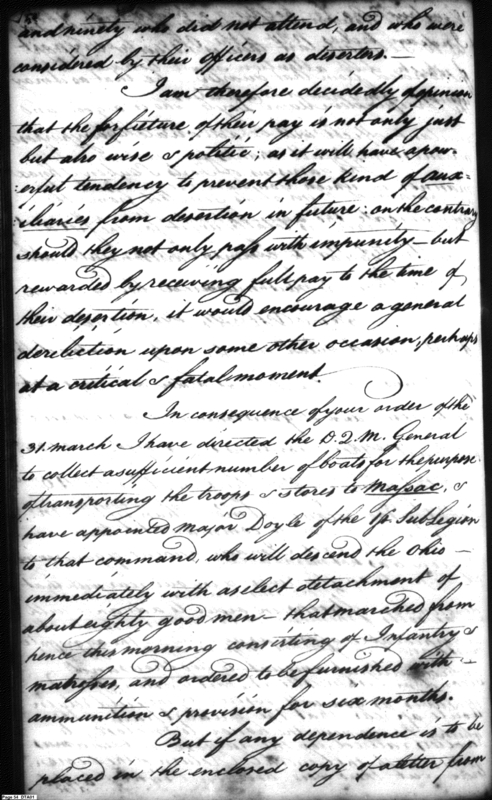 and ninety who did not attend, and who were
considered by their officers as deserters.—
I am therefore decidedly of opinion
that the forfieture of their pay is not only just
but also wise & politic; as it will have a pow-
-erful tendency to prevent those kind of aux-
-iliaries from desertion in future; on the contrary
should they not only pass with impunity— but
rewarded by receiving full pay to the time of
their desertion, it would encourage a general
derelection upon some other occasion, perhaps
at a critical & fatal moment.
In consequence of your order of the
31. march I have directed the D. Q. M. General
to collect a sufficient number of boats for the purpose
of transporting the troops & stores to Massac, &
have appointed Major Doyle of the 1st. Sub Legion
to that command, who will descend the Ohio—
immediately with a select detachment of
about eighty good men— that marched from
hence this morning consisting of Infantry &
matrosses, and ordered to be furnished with—
ammunition & provision for six months.
But if any dependence is to be
placed in the enclosed copy of a letter from
Page 54 DTA01